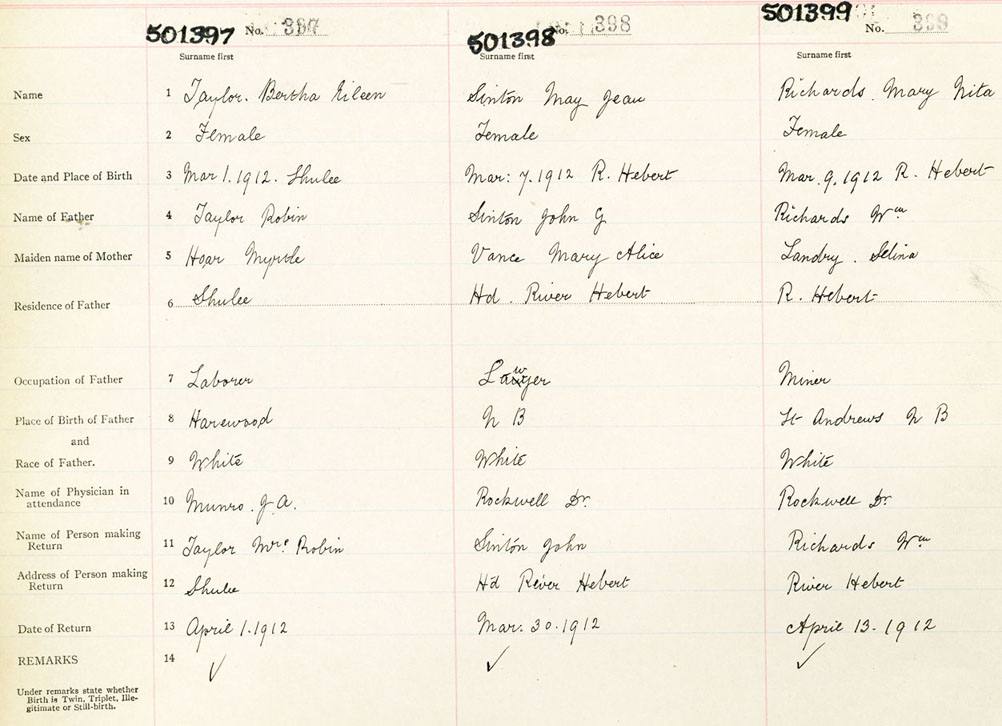 501397 No. 397 501398 No. 398 501399 No. 399
Surname first Surname first Surname first
Name 1 Taylor. Bertha Eileen Sinton May Jean Richards. Mary Nita
Sex 2 Female Female Female
Date and Place of Birth 3 Mar 1. 1912. Shulee Mar: 7. 1912 R. Hebert Mar. 9. 1912 R. Hebert
Name of Father 4 Taylor Robin Sinton John G Richards Wm
Maiden name of Mother 5 Hoar Myrtle Vance Mary Alice Landry. Selina
Residence of Father 6 Shulee Hd. River Hebert R. Hebert
Occupation of Father 7 Laborer Miner
Place of Birth of Father 8 Harewood N B St Andrews N B
and
Race of Father. 9 White White White
Name of Physician in
attendance 10 Munro. J. A. Rockwell Dr. Rockwell Dr.
Name of Person making
Return 11 Taylor Mrs Robin Sinton John Richards Wm
Address of Person making
Return 12 Shulee Hd River Hebert River Hebert
Date of Return 13 April 1. 1912 Mar. 30. 1912 April 13. 1912
REMARKS 14 ✓ ✓ ✓
Under remarks state whether
Birth is Twin, Triplet, Ille-
gitimate or Still-birth.